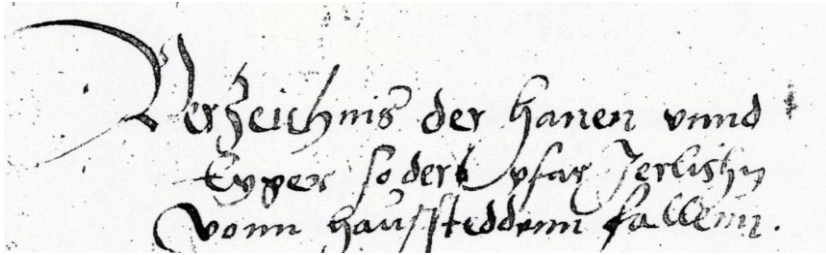 Verzeichnis der hanen vnnd
Eyger so derk pfar Jerlichn
vonn haußsteddenn fallenn.